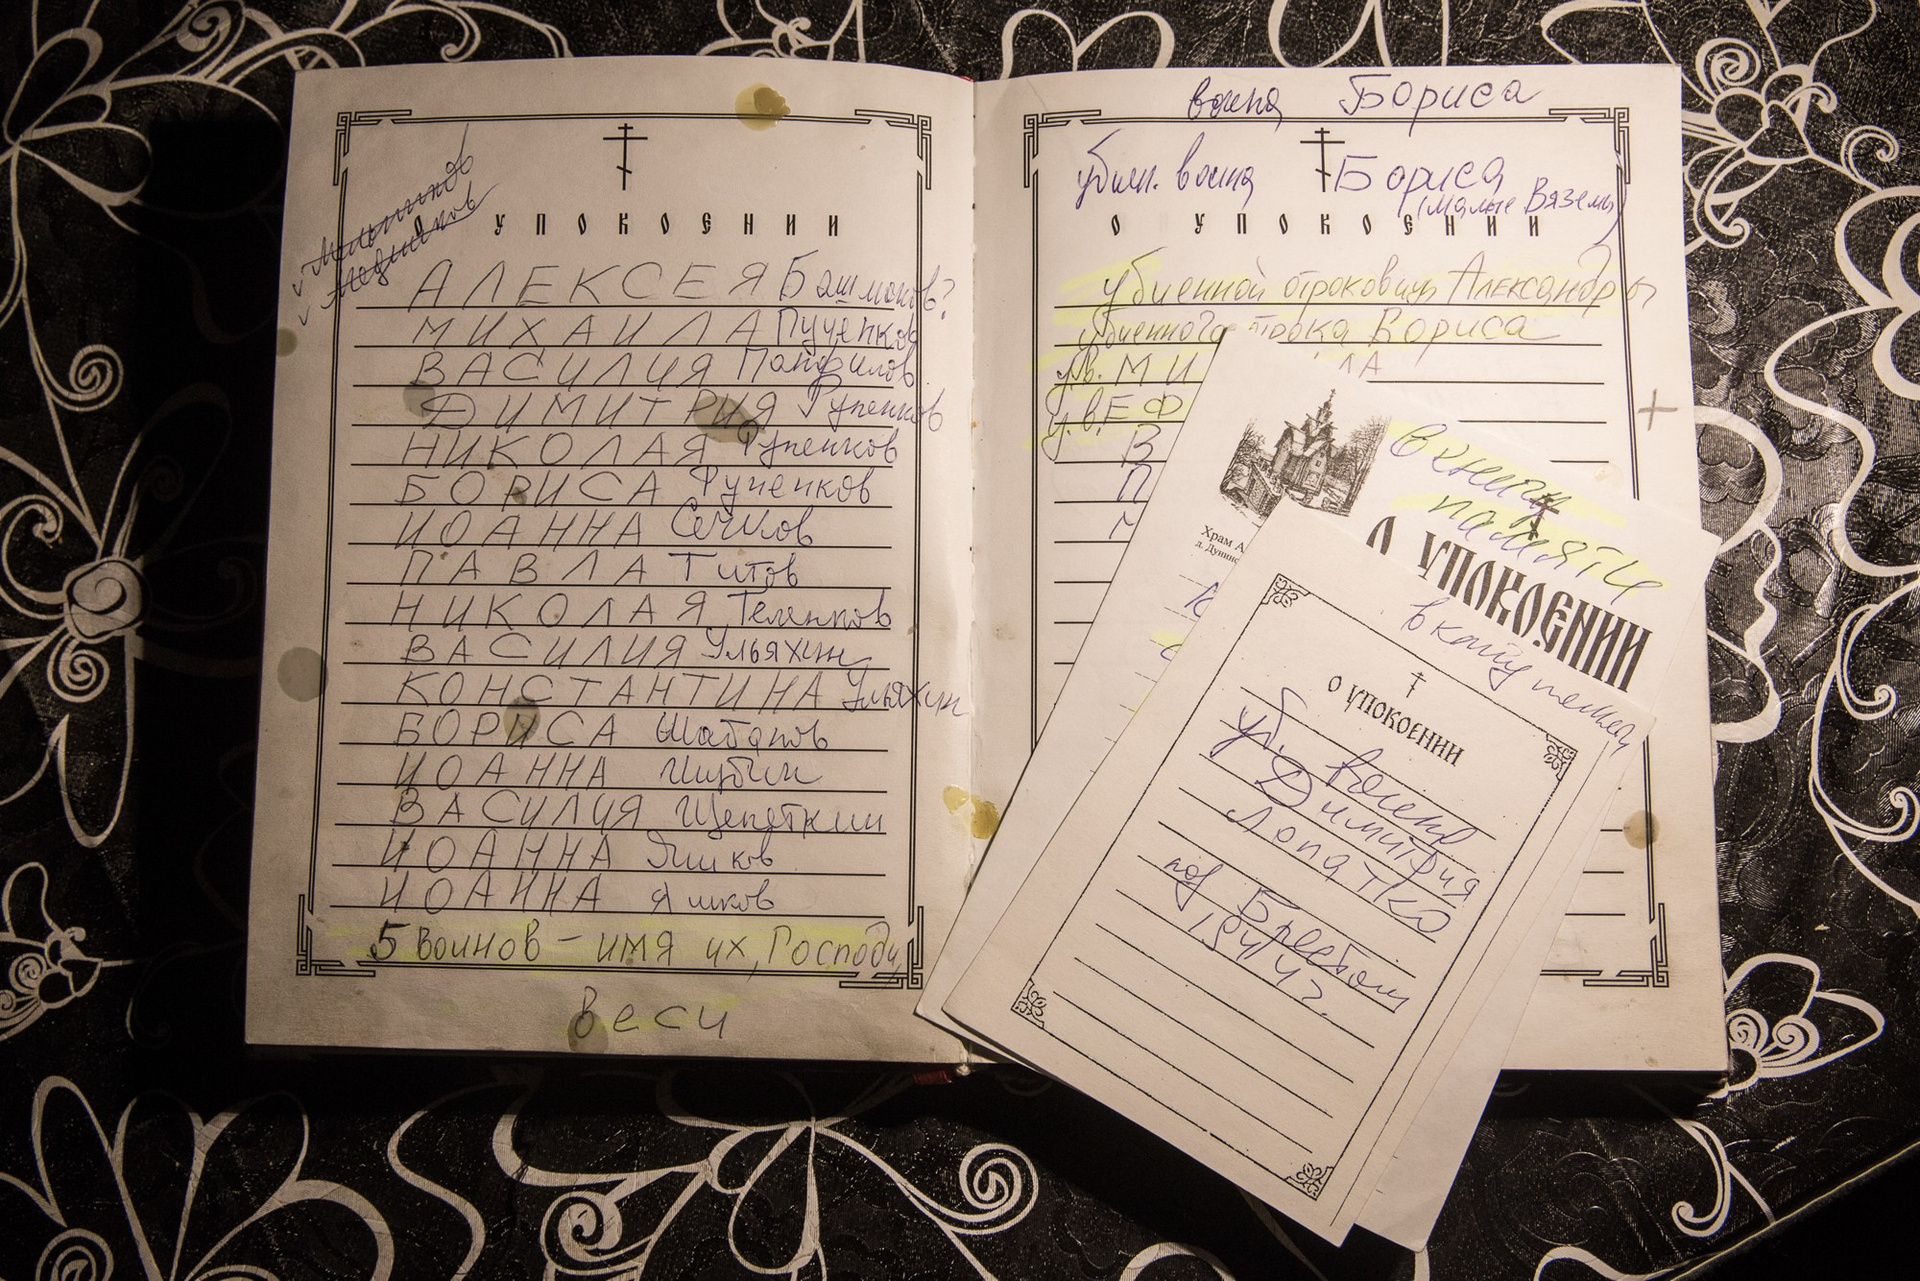 О УПОКОЕНИИ
АЛЕКСЕЯ Башмаков?
МИХАИЛА Пученков
ВАСИЛИЯ Панфилов
ДИМИТРИЯ Рупенков
НИКОЛАЯ Рупенков
БОРИСА Рупенков
ИОАННА Сечков
ПАВЛА Титов
НИКОЛАЯ Теленков
ВАСИЛИЯ Ульяхин
КОНСТАНТИНА Ульяхин
БОРИСА Шабанов
ИОАННА
ВАСИЛИЯ Щепеткин
ИОАННА Яшков
ИОАННА Яшков
5 воинов – имя их, Господи,
веси
воина Бориса
убиен. воина Бориса
(малые Вяземы)
О УПОКОЕНИИ
убиенной отроковицы Александры
убиенного отрока Бориса
ув. МИ ЛА
ув. ЕФ
В
П
Храм А
д. Дунино
в книгу
памяти
О УПОКОЕНИИ
О УПОКОЕНИИ
уб. воина
Димитрия
Лопатко
под Брестом
1941 г.